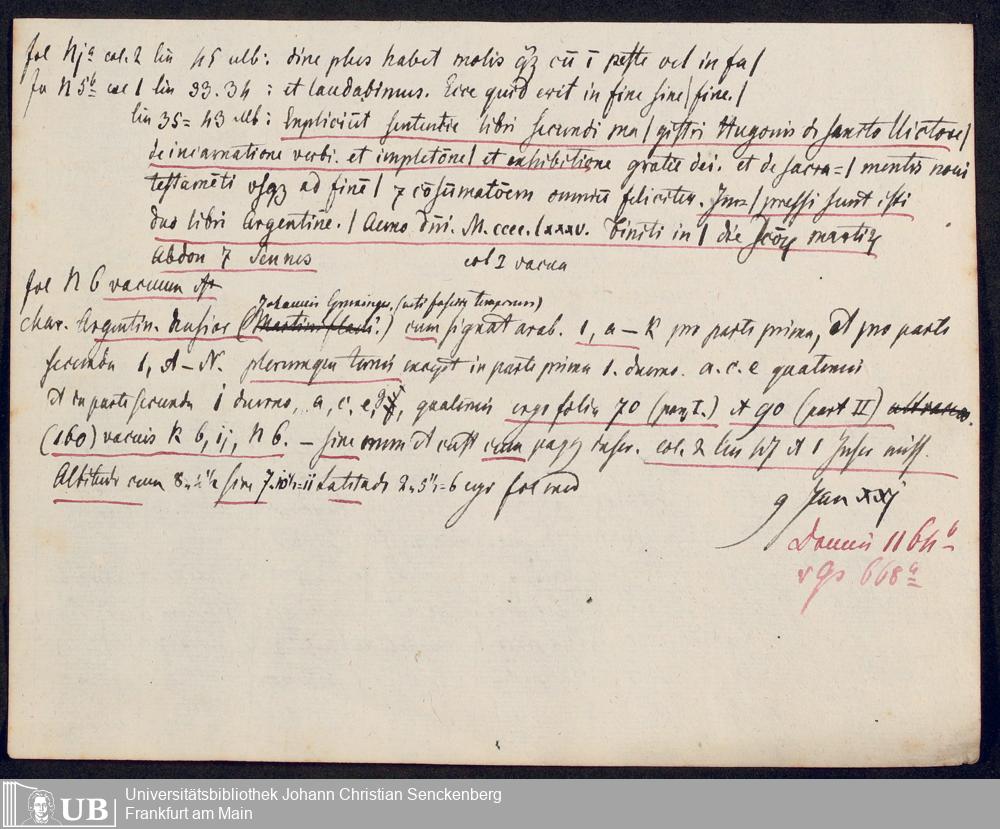 fol Nja col. 2 lin 45 ulb: dine plus habet molis qʒ cū ī peste vel in fa/
fo N 5b col 1 lin 33.34 : et laudabimus. Ecce quid erit in fine sine / fine. /
lin 35=43 ulb: Expliciūt sententie libri secundi ma / gistri Hugonis de sancto Victore /
de incarnatione verbi. et impletōne / et exhibitione gratie dei. et de sacra= / mentis noui
testamēti vsqʒ ad finē / ⁊ cōsūmatōem omniū feliciter. Im= / pressi sunt isti
duo libri Argentine. / Anno dn̄i. M.cccc.lxxxv. Finiti in / die martiꝝ
Abdon ⁊ Sennes
col 2 vacua
fol N 6 vacuum
Johannis Gruninger.
char. Argentin. cum signat arab. 1, a – K pro parte prima, et pro parte
secunda 1, A – N. plerumque ternis in parte prima 1. duerno. a. c. e quaternis
et in parte secunda 1 duerno, a, c, e, quaternis ergo folia 70 (pars I.) et 90 (part II)
(160) vacuis K 6, ij, N 6. – sine num et cust cum col. 2 lin 47 et
Altitudo cum sine Latitudo fol med
9 Jan xxj
164b
668a
Universitätsbibliothek Johann Christian Senckenberg
UB
Frankfurt am Main